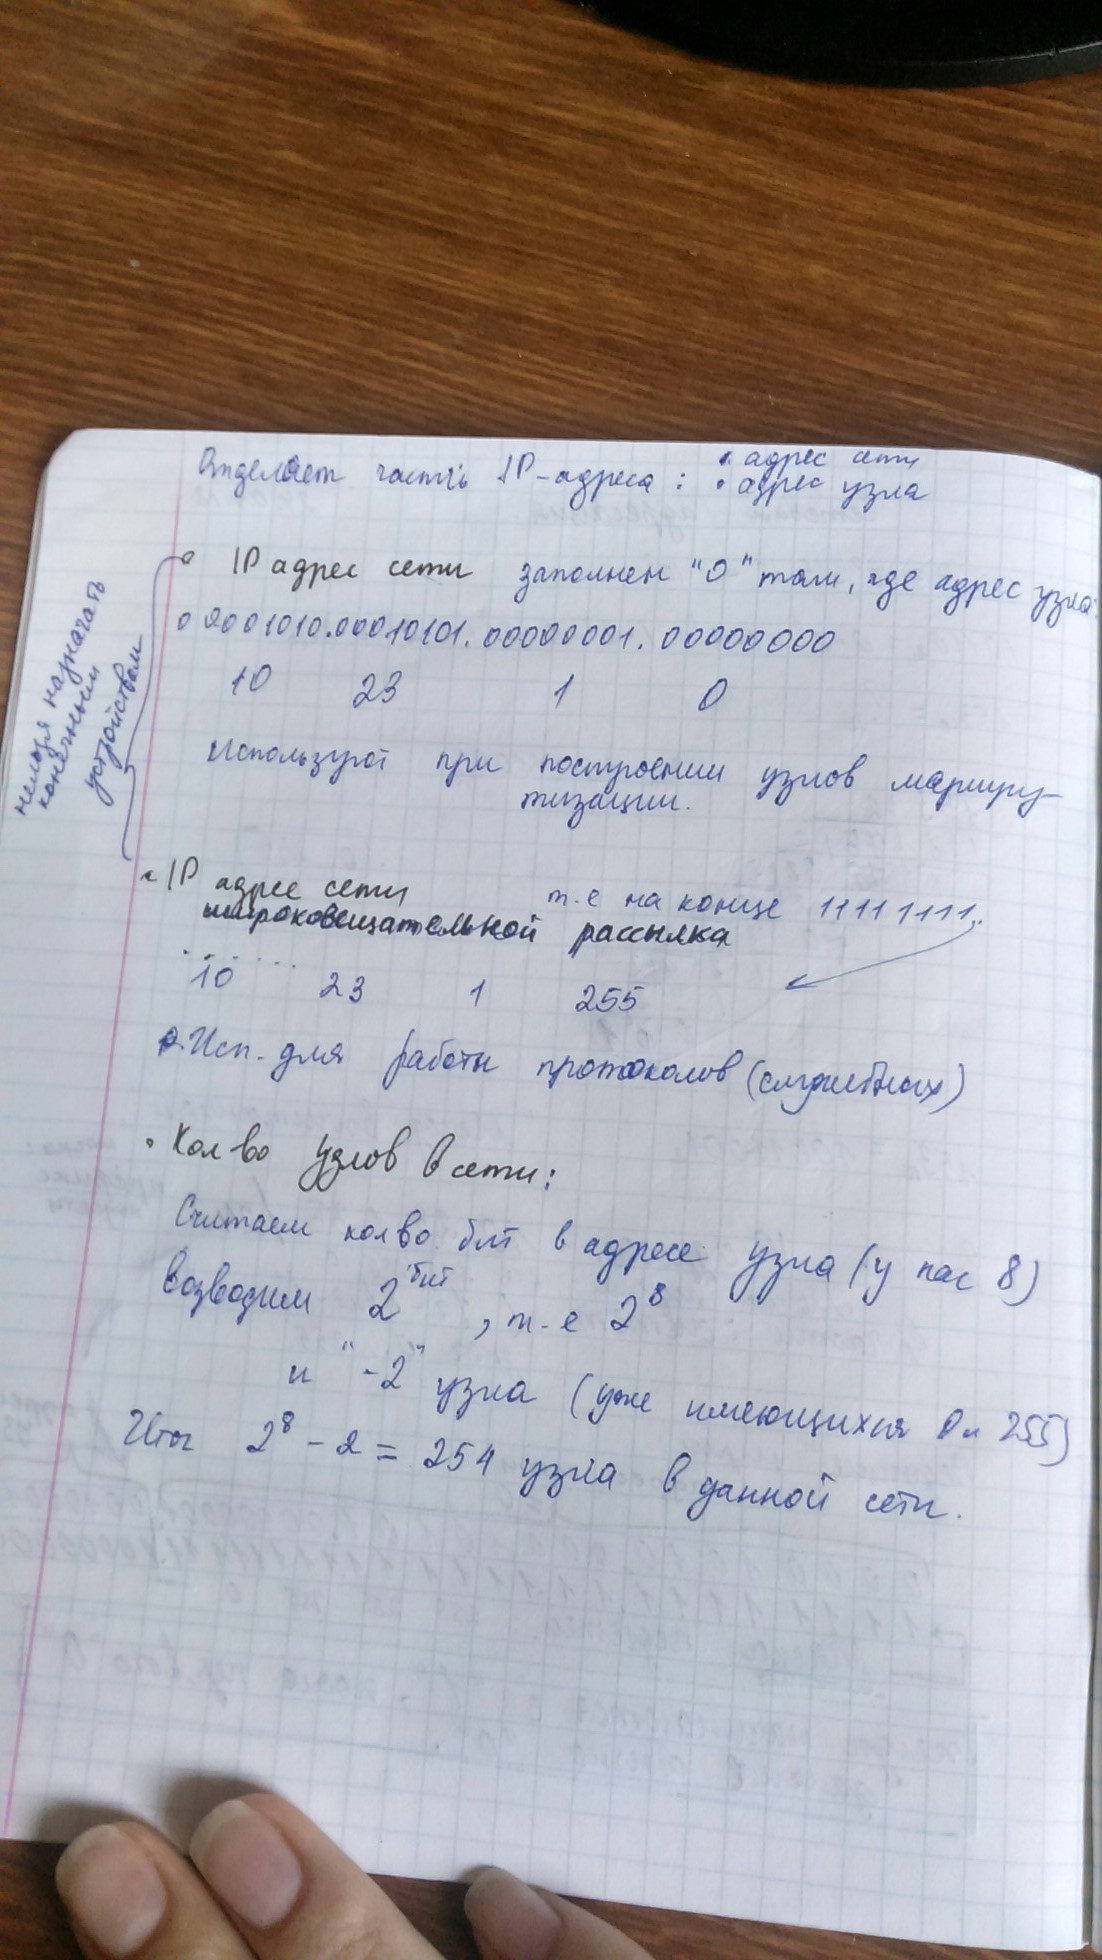 Отделяет часть IP-адреса: • адрес сети
• адрес узла
• IP адрес сети заполнен "0" там, где адрес узла:
00001010.00010101.00000001.00000000
10 23 1 0
Используют при построении узлов маршру-
тизации.
нельзя назначать
конечным
устройствам
• IP адрес сети т.е на конце 11111111.
широковещательной рассылка
10 23 1 255
• Исп. для работы протоколов (служебных)
• Кол во узлов в сети:
Считаем кол во бит в адресе узла (у нас 8)
Возводим 2^бит, т-е 2^8
и "-2" узла (уже имеющихся 0 и 255)
Итог 2^8 - 2 = 254 узла в данной сети.